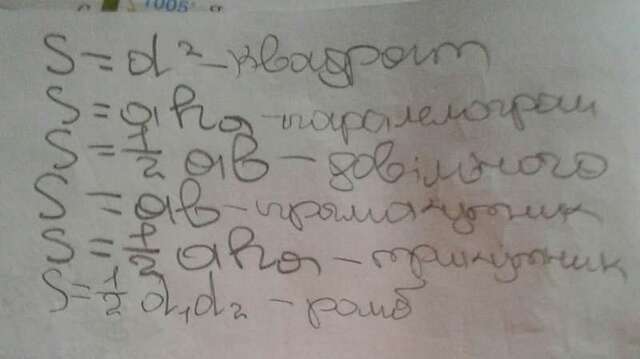 1005
S = a² – квадрат
S = ahₐ – паралелограм
S = 1/2 ab – довільного
S = ab – прямокутник
S = 1/2 ahₐ – трикутник
S = 1/2 d₁d₂ – ромб